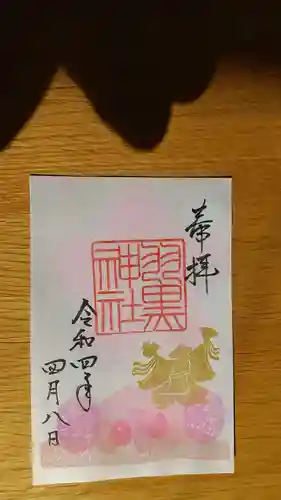 奉拝
羽黒
神社
令和四年
四月八日